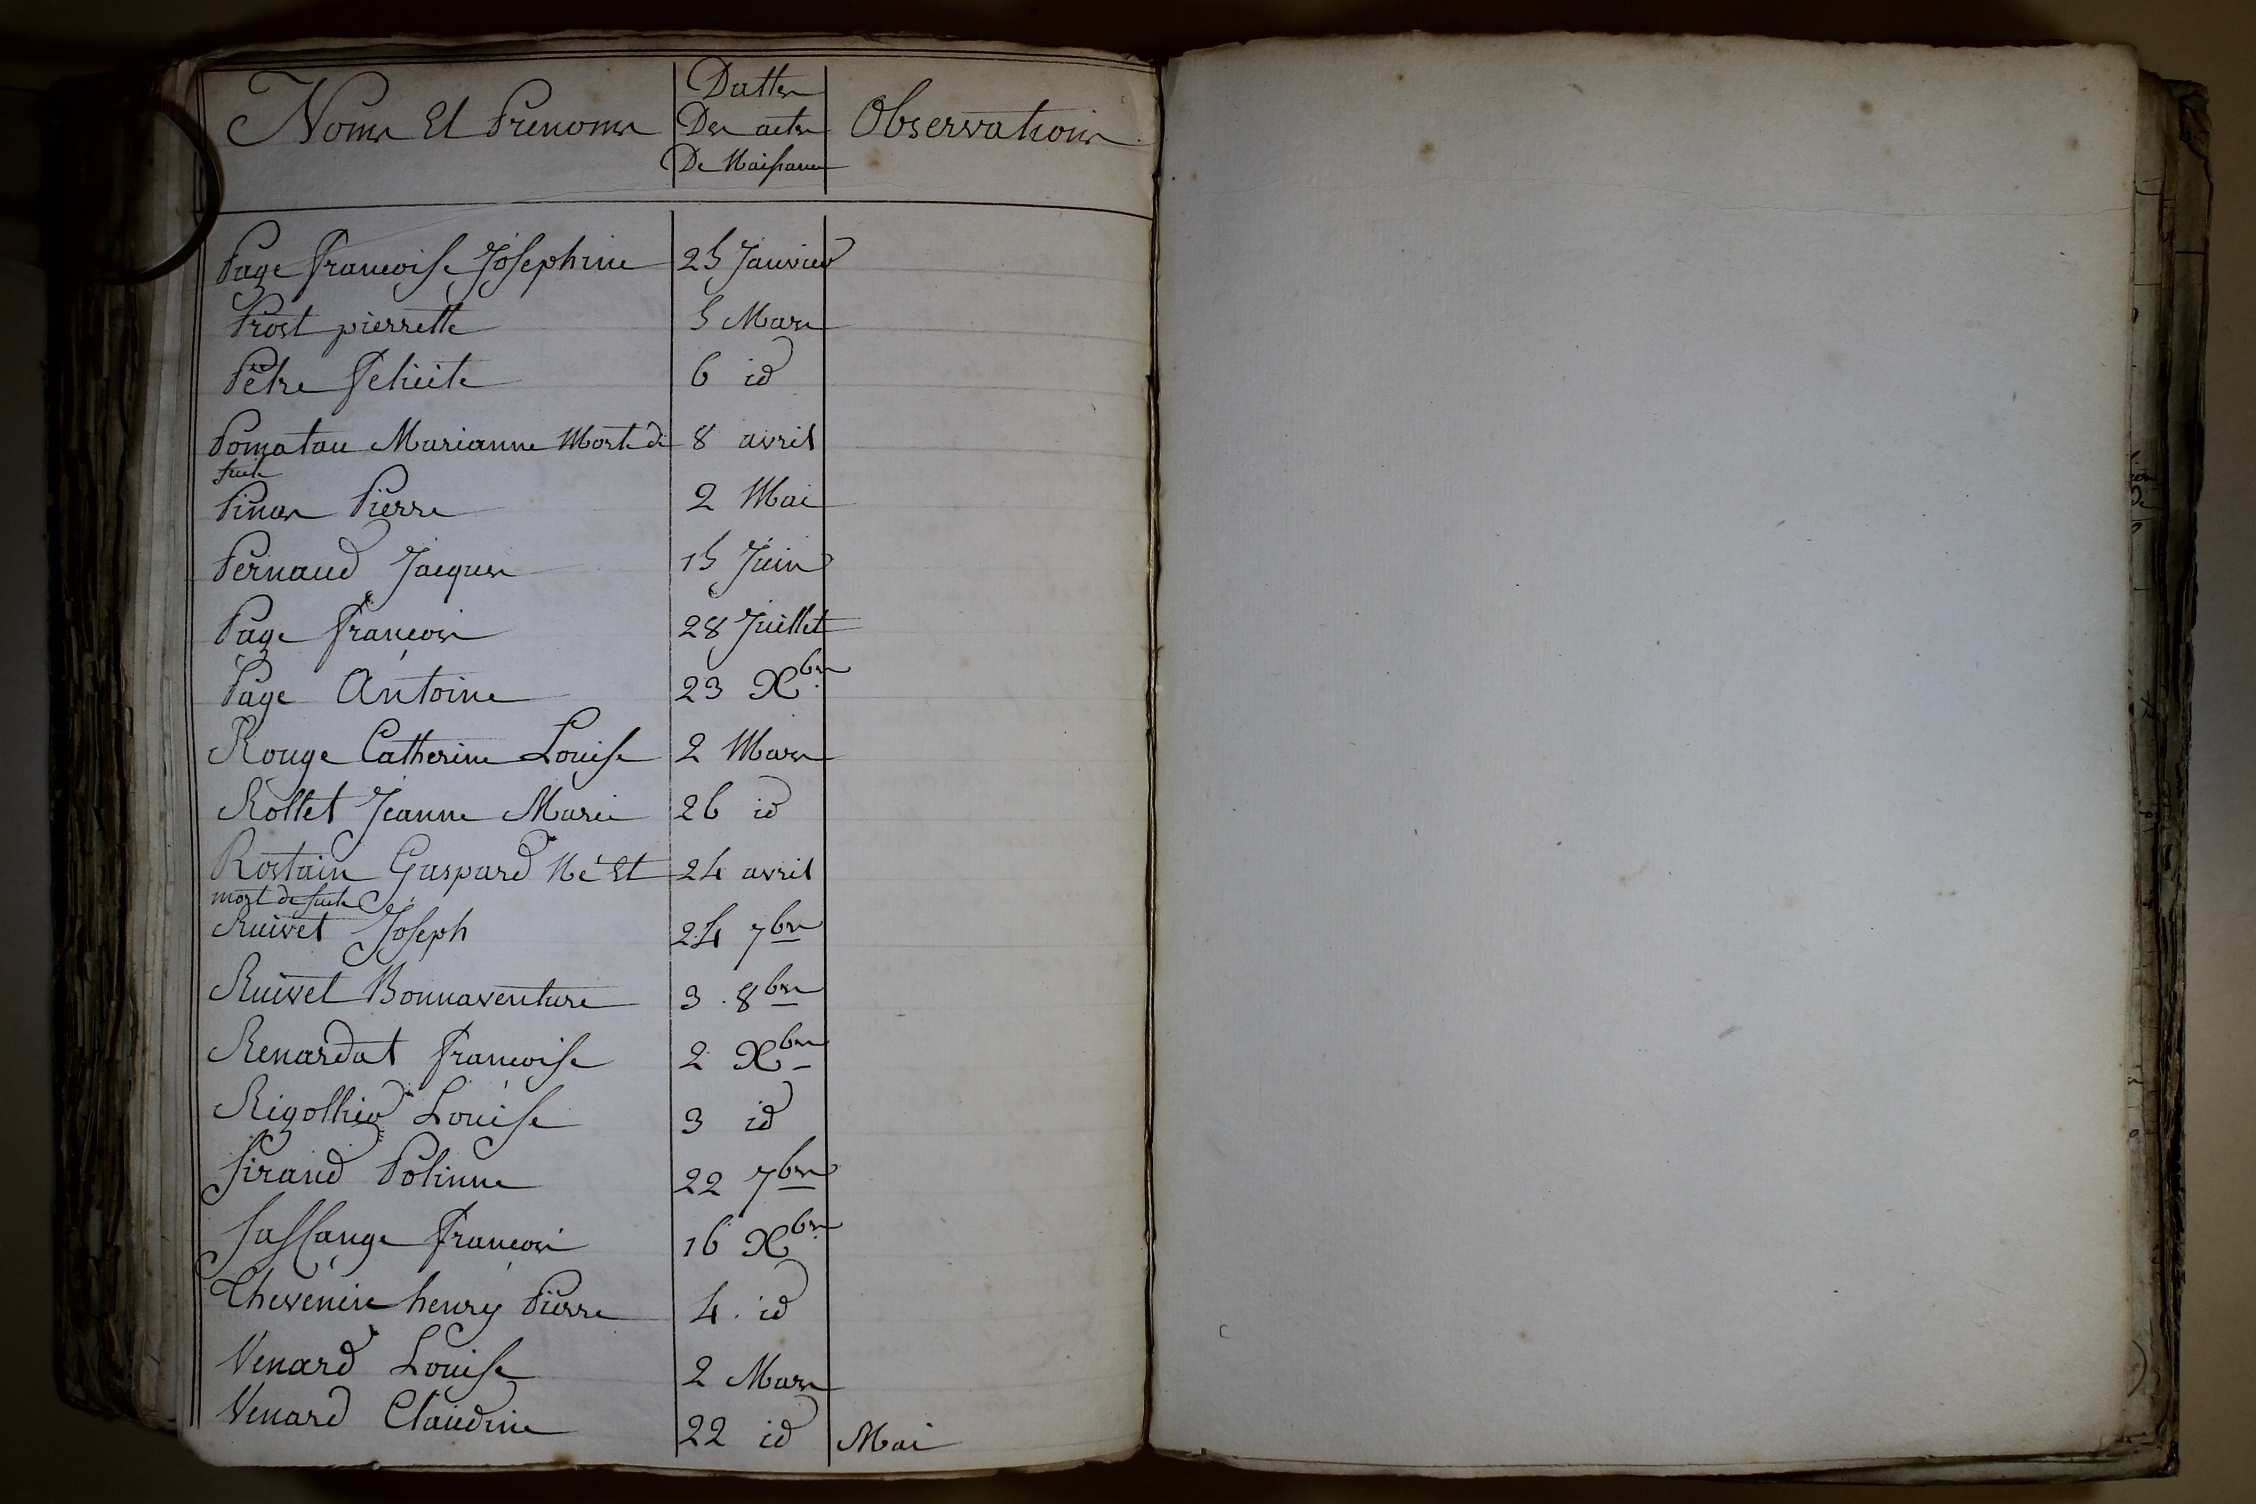 Noms Et Prenoms Dattes Des actes De Naissance Observations
Page francoise Josephine 25 Janvier
Prost pierrette 5 Mars
Pêtre felicite 6 id
Pomatau Marianne Morte de 8 avril
suite
Pinas Pierre 2 Mai
Pernaud Jacques 15 Juin
Page françois 28 Juillet
Page Antoine 23 Xbre
Rouge Catherine Louise 2 Mars
Rollet Jeanne Marie 26 id
Rostain Gaspard Né Et 24 avril
mort de suite
Ruivet Joseph 24 7bre
Ruivet Bonnaventure 3 8bre
Renardat francoise 2 Xbre
Rigollier Louise 3 id
Siraud Polinne 22 7bre
Passange françois 16 Xbre
Thevenin henry Pierre 4 id
Venard Louise 2 Mars
Venard Claudine 22 id Mai